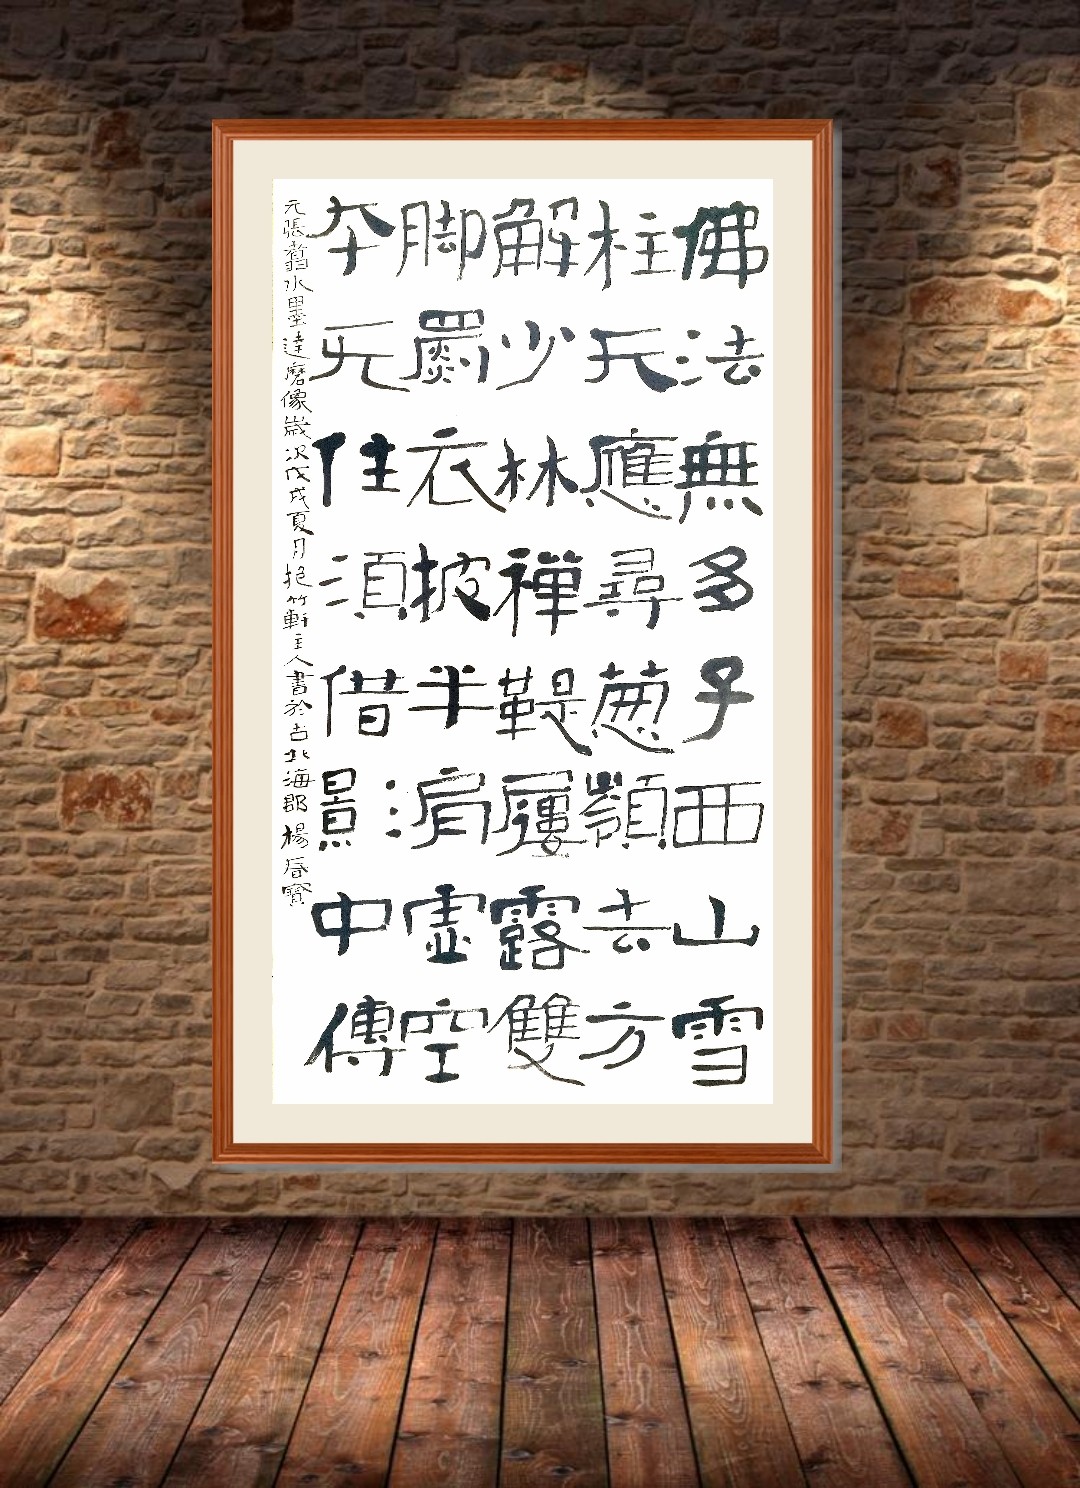 佛法無多子西山雪
柱天應尋葱嶺去方
解少林禪鞮屨露雙
脚罽衣披半肩虛空
夲无住須借景中傳
元張翥水墨達磨像歲次戊戌夏月抱竹軒主人書於古北海郡楊春寶